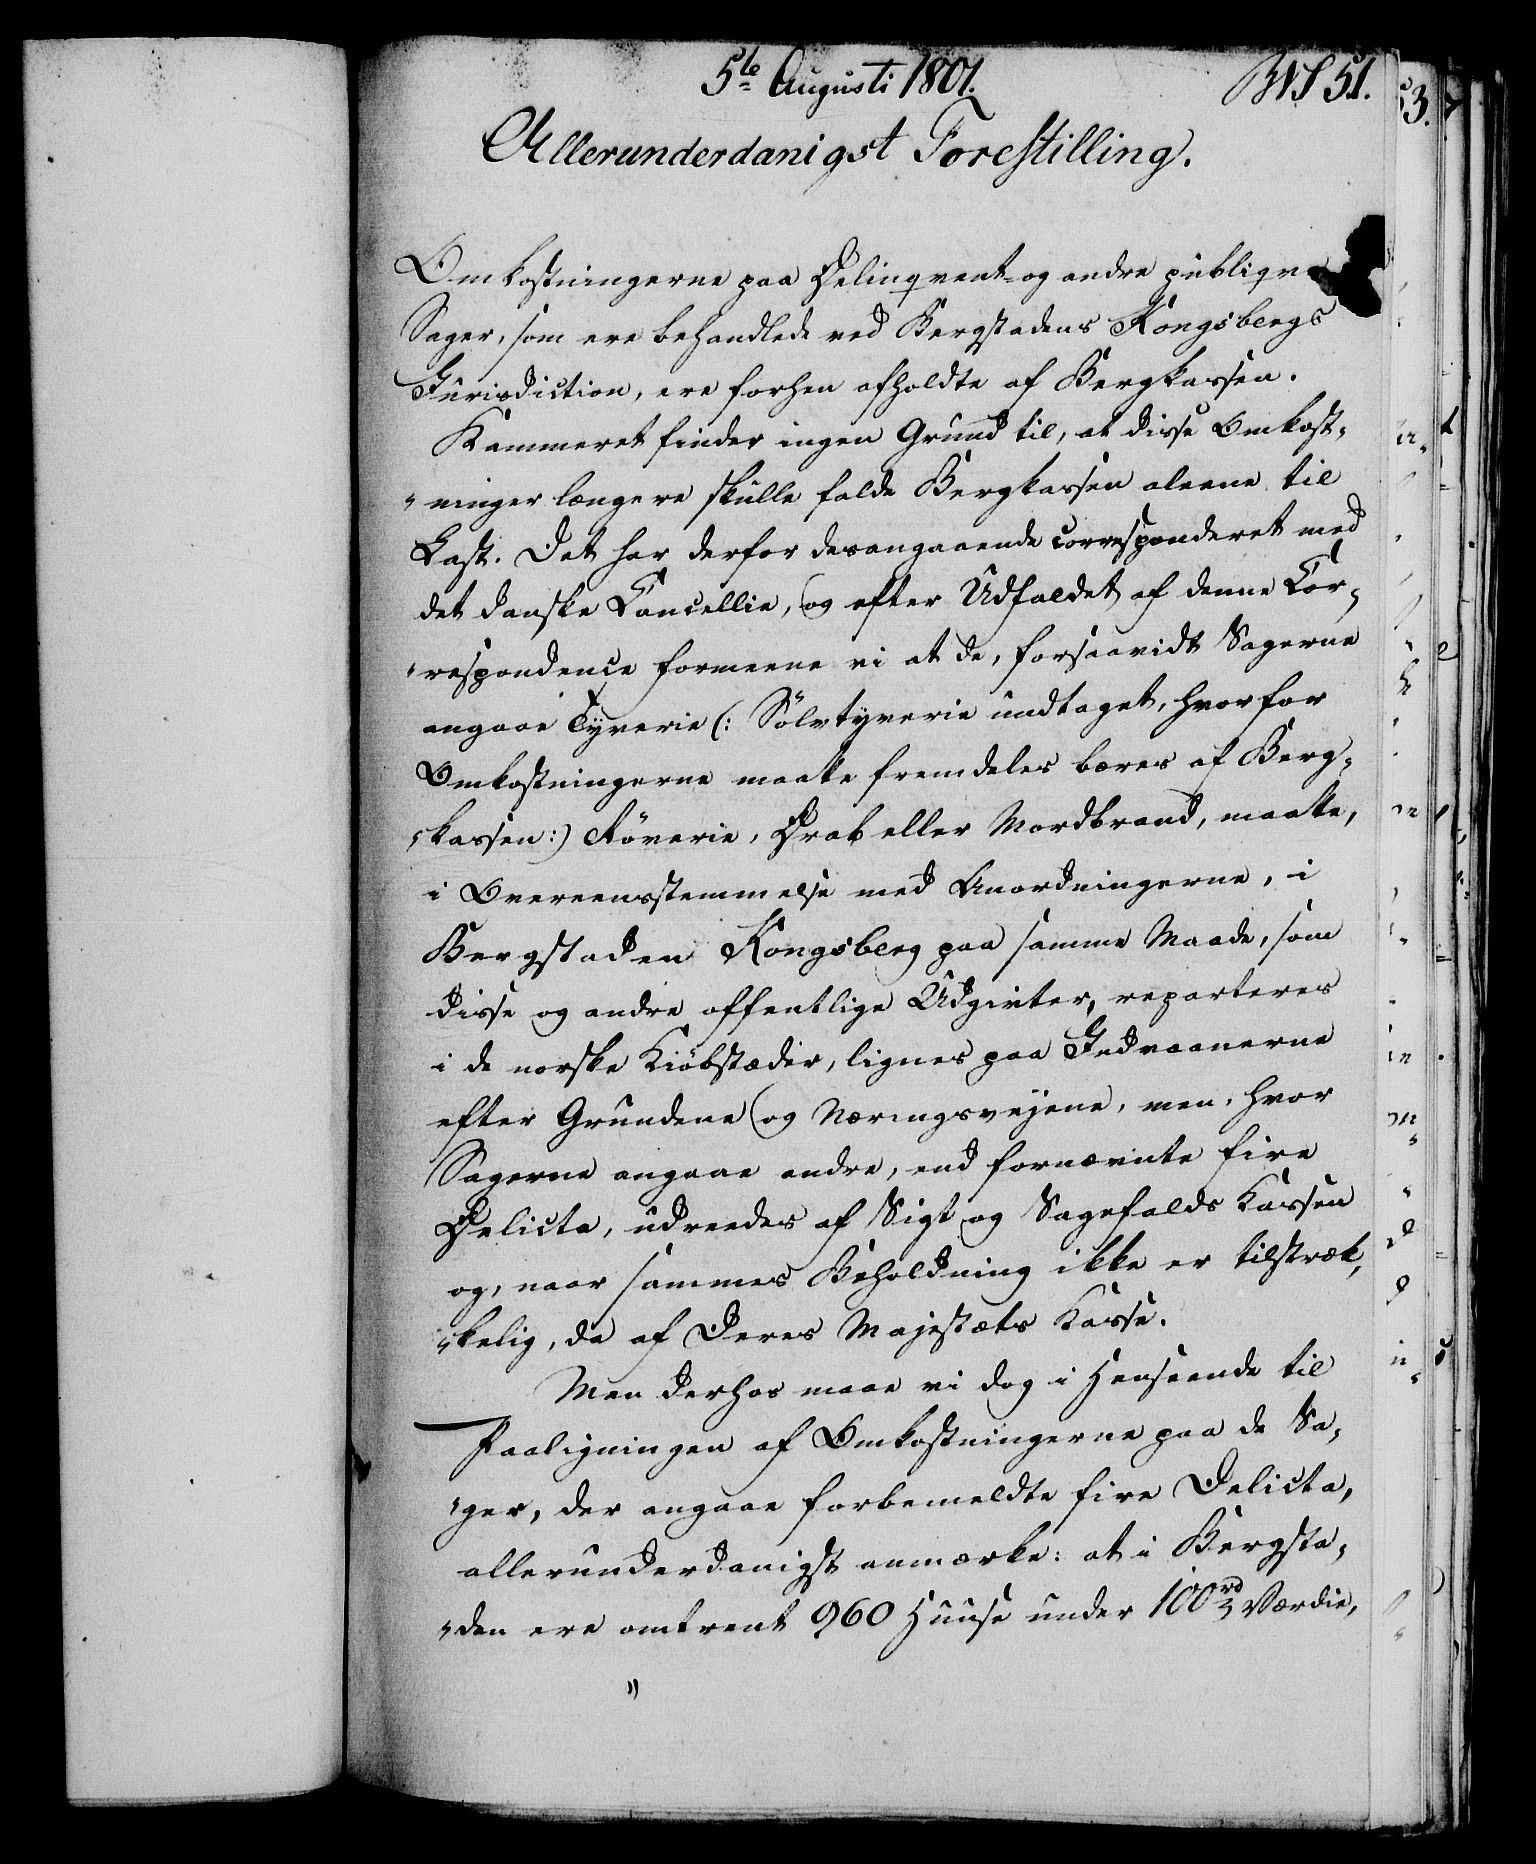 5te Augusti 1801.
51.
Allerunderdanigst Forestilling.
Omkostningerne paa Delinqvent- og andre publiqve
Sager, som ere behandlede ved Bergstadens Kongsbergs
Jurisdiction, ere forhen afholdte af Bergkassen.
Kammeret finder ingen Grund til, at disse Omkost-
"ninger længere skulle falde Bergkassen aleene til
Last. Det har derfor desangaaende correspønderet med
det danske Cancellie, og efter Udfaldet af denne Cor-
"respondence formeene vi at de, forsaavidt Sagerne
angaae Tyverie (: Sölvtyverie undtaget, hvorfor
Omkostningerne maatte fremdeles bæres af Berg-
"kassen:) Röverie, Drab eller Mordbrand, maatte,
i Overeensstemmelse med Anordningerne, i
Bergstaden Kongsberg paa samme Maade, som
disse og andre offentlige Udgivter, reparteres
i de norske Kiöbstæder, lignes paa Indvaanerne
efter Grundene og Næringsvejene, men, hvor
Sagerne angaae andre, end fornævnte fire
Delicta, udreedes af Sigt og Sagefalds Kassen
og, naar sammes Beholdning ikke er tilstræk-
"kelig, da af Deres Majestæts Kasse.
Men derhos maae vi dog i Henseende til
Paaligningen af Omkostningerne paa de Sa-
"ger, der angaae forbemeldte fire Delicta,
allerunderdanigst anmærke: at i Bergsta-
"den ere omtrent 960 Huuse under 100 rd Værdie,
"